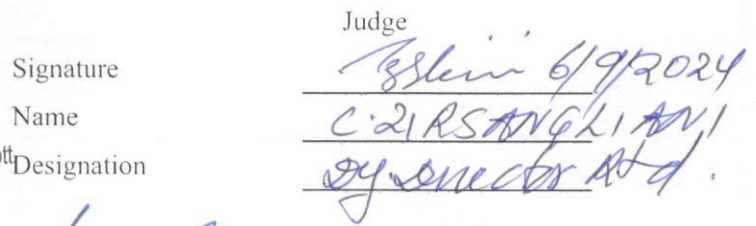 Judge
Signature 6/9/2024
Name C. ZIRSANGLIANI
ott
Designation Dy. Director Rtd.